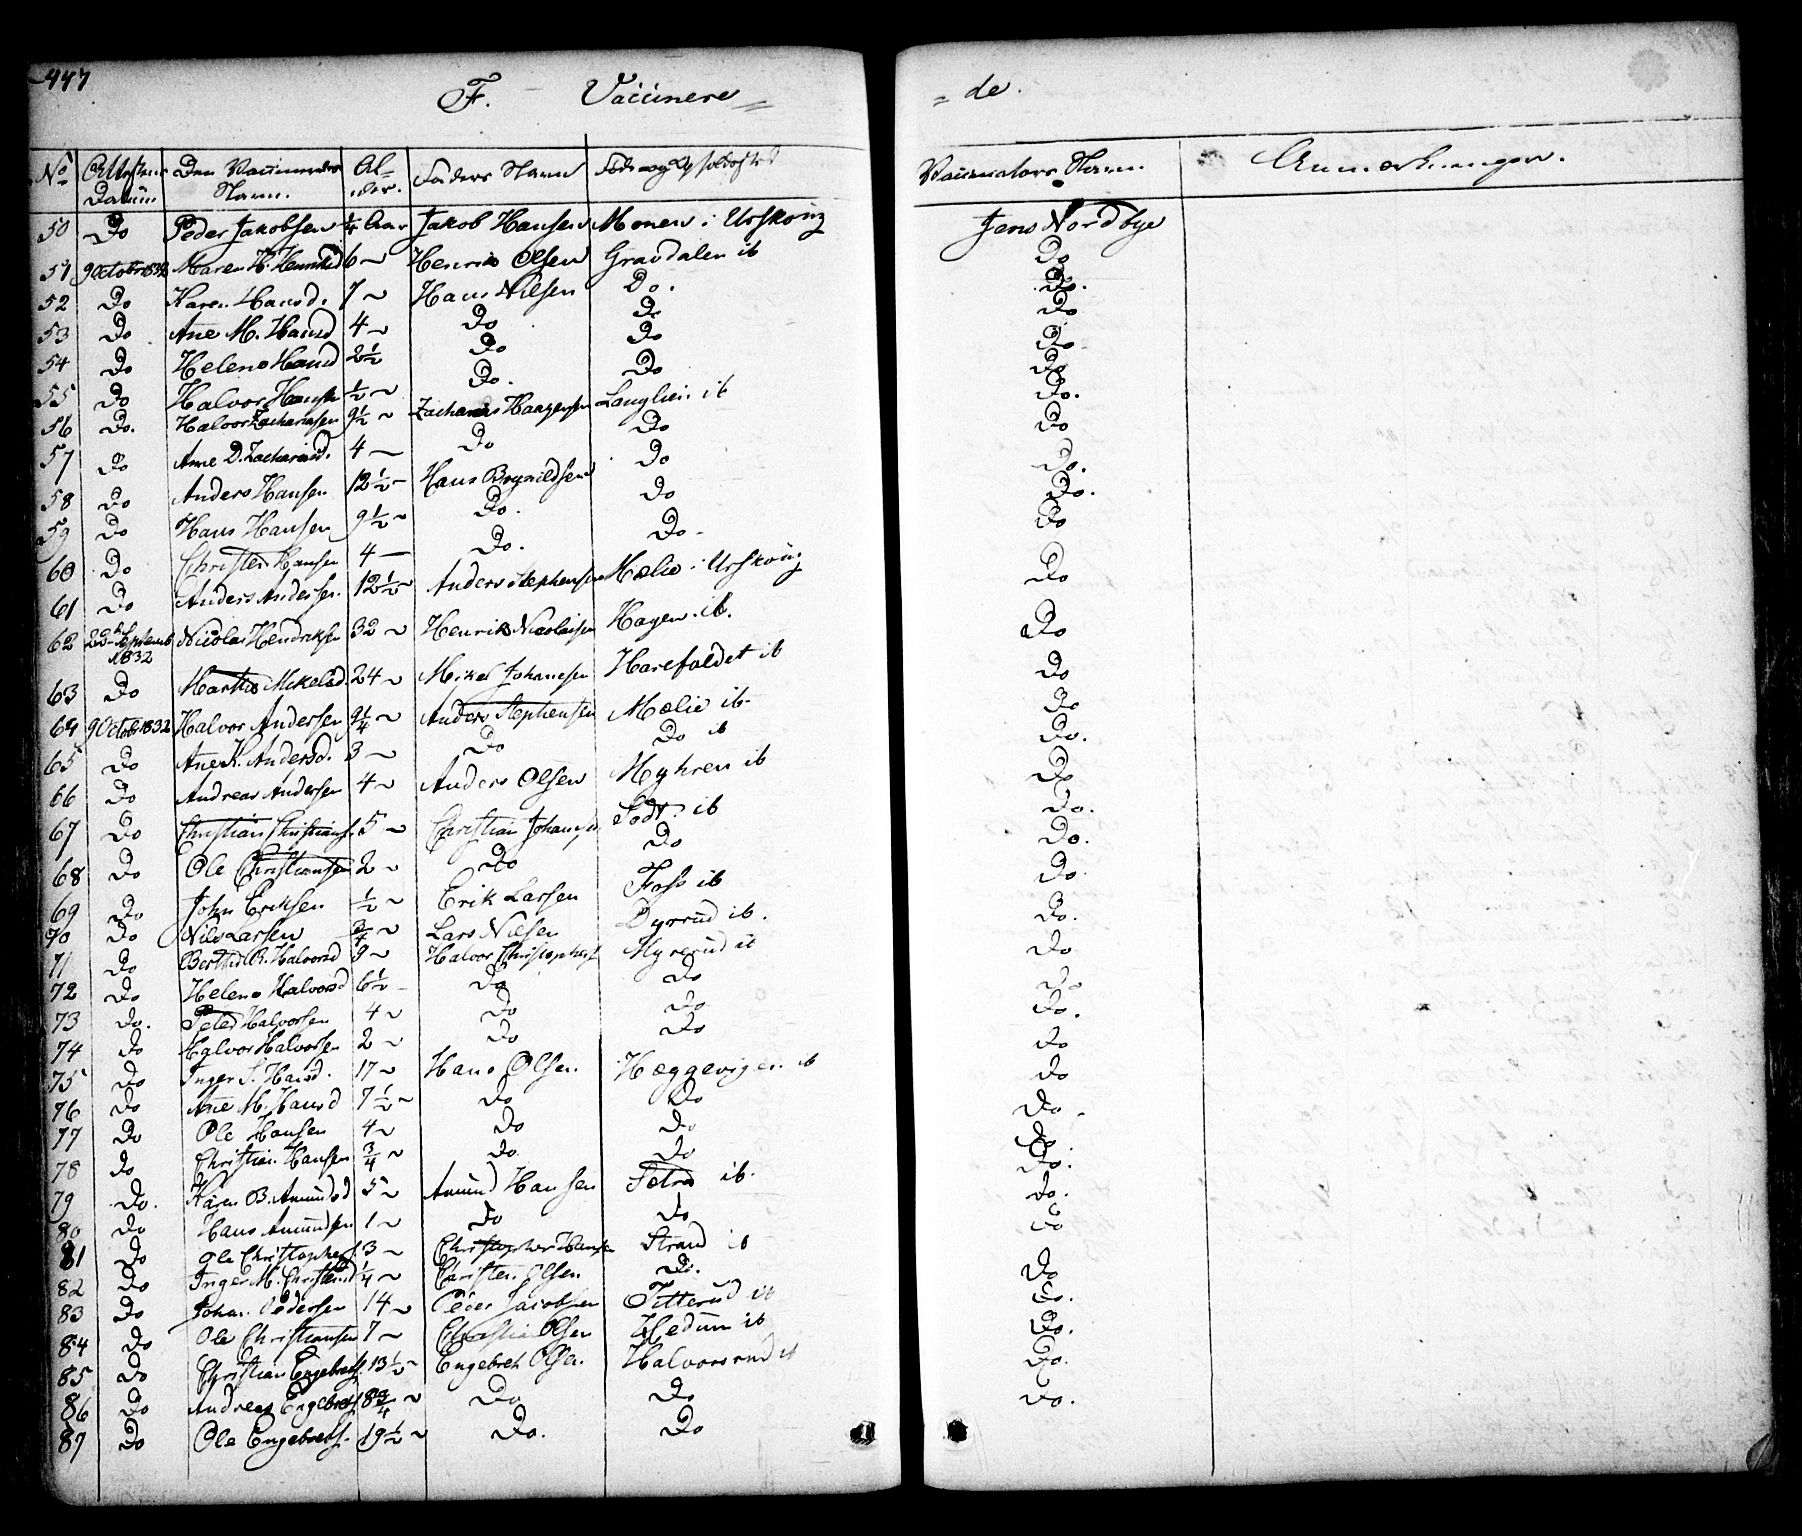 447
F. Vaccinere = = de.
No Attestens Datum Den Vaccineredes Navn. Al-der. Faders Navn Føde og Opholdssted Vaccinators Navn Anmærkninger.
50 Do Peder Jakobsen 1/4 Aar Jakob Hansen Monen i Urskoug Jens Nordbye
51 9 Octobr 1832 Maren H. Henriksd 6 ~ Henrik Olsen Gravdalen ib Do
52 Do Karen Hansd. 7 ~ Hans Nilsen Do. Do.
53 Do Ane M. Hansd 4 ~ Do Do Do
54 Do Helene Hansd 2 1/2 Do Do Do
55 Do Halvor Hansen 1/2 ~ Do. Do Do
56 Do. Halvor Zachariasen 9 1/2 ~ Zacharias Haagensen Langlien ib Do.
57 Do Anne D. Zachariasd. 4 — Do Do Do
58 Do Anders Hansen 12 1/2 - Hans Brynildsen Do Do.
59 Do Hans Hansen 9 1/2 ~ Do. Do Do.
60 Do Christen Hansen 4 — Do. Do - Do
61 Do Anders Andersen. 12 1/2 ~ Anders Stephensen Mælie i Urskoug Do
62 22de Septemb 1832 Nicolai Hendriksen 32 ~ Henrik Nicolaisen Hagen ib. Do
63 Do Marthe Mikelsd. 24 ~ Mikel Johansen Harefaldet ib Do
64 9 Octobr 1832 Halvor Andersen 9 1/4 ~ Anders Stephensen Mælie ib- Do
65 Do Ane K. Andersd. 3 ~ Do Do ib Do.
66 Do Andreas Andersen 4 ~ Anders Olsen Myhren ib Do
67 Do Christian Christians. 5 ~ Christian Johansen ib Do.
68 Do Ole Christiansen 2 ~ Do Do Do.
69 Do John Eriksen 1/2 ~ Erik Larsen Foss ib Do
70 Do Nils Larsen 3/4 ~ Lars Nilsen Dyrrud ib. Do.
71 Do Berthe R. Halvorsd 9 ~ Halvor Christophers Myrerud ib Do
72 Do Helene Halvorsd 6 1/2 - Do Do Do
73 Do. Peder Halvorsen 4 ~ Do Do Do.
74 Do Halvor Halvorsen 2 ~ Do Do Do
75 Do Inger S. Hansd. 17 ~ Hans Olsen Hæggevigen ib Do
76 Do Ane M. Hansd 7 1/2 ~ Do Do Do -
77 Do Ole Hansen 4 ~ Do Do Do
78 Do Christian Hansen 3/4 ~ Do. Do Do.
79 Do. Karen B. Amundsd 5 ~ Amund Hansen ib. Do.
80 Do Hans Amundsen 1 ~ Do Do Do
81 Do Ole Christophers. 3 ~ Christopher Hansen Strand ib Do
82 Do Inger M. Christensd 1/4 ~ Christen Olsen Do. Do.
83 Do Johan Pedersen 14 ~ Peder Jacobsen Fitterud ib Do.
84 Do Ole Christiansen 7 ~ Christian Olsen Hedum ib Do.
85 Do Christian Engebrets. 13 1/2 ~ Engebret Olsen. Halvorsrud ib Do.
86 Do Andreas Engebrets 8 3/4 ~ Do Do Do.
87 Do Ole Engebrets. 19 1/2 ~ Do. Do